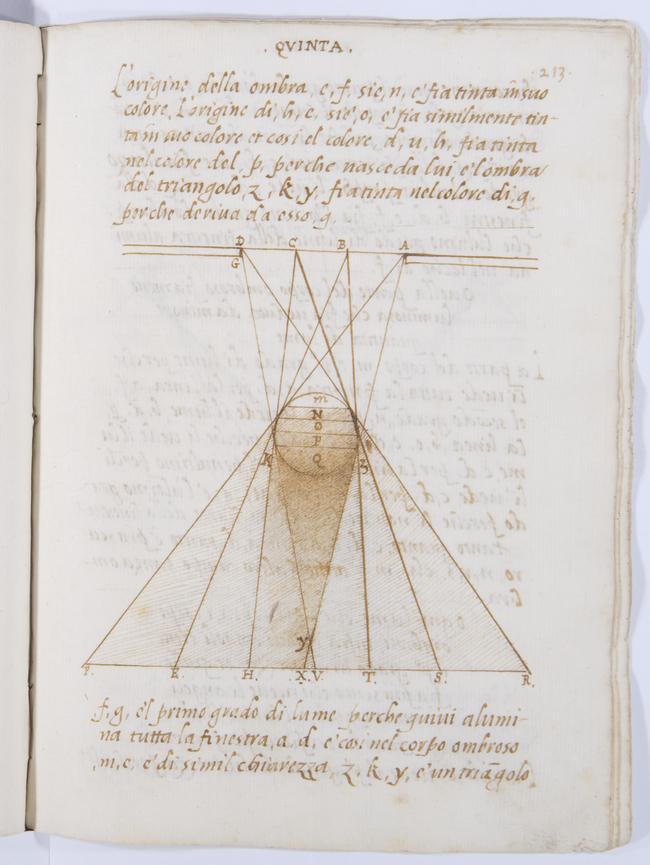 . QVINTA .
. 213 .
L'origine della ombra, e, f, sie, n, e' fia tinta in suo
colore, L'origine di, h, e, sie', o, e' fia similmente tin-
ta in suo colore et cosi el colore, d, u, h, fia tinta
nel colore del p, perche nasce da lui e l'ombra
del triangolo, z, k, y, fia tinta nel colore di, q,
perche deriva da esso, q,
D C B A
G
m
N
O
P
Q
K 3
y
E. H. X.V. T. S. R.
f, g, e'l primo grado di lume perche quivi alumi-
na tutta la finestra, a, d, e' cosi nel corpo ombroso
, m, e, e' di simil chiarezza, z, k, y, e' un triāgolo